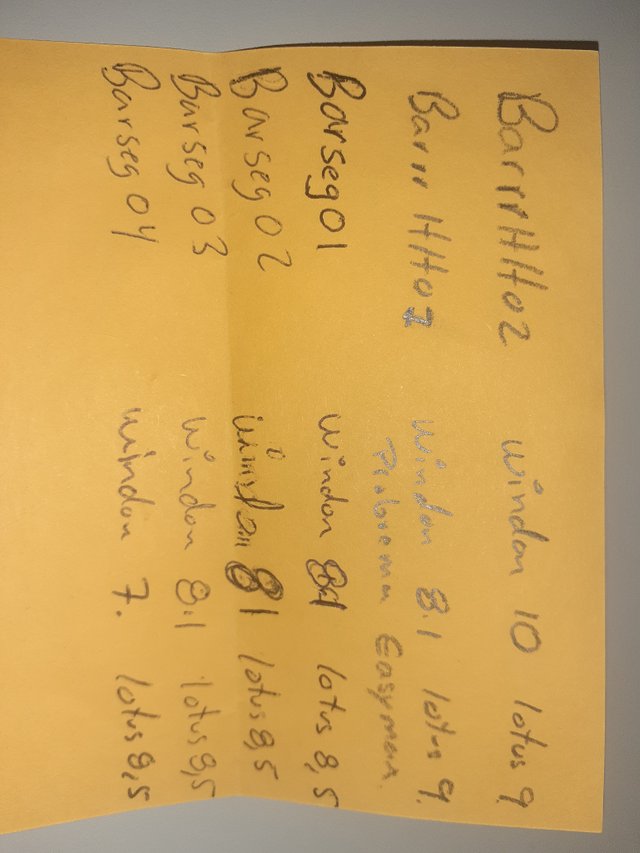 BarrrHH02 windon 10 lotus 9
Barrr HH01 windon 8.1 lotus 9.
Problema Easyman
Barseg01 windon 81 lotus 8,5
Barseg02 windon 81 lotus 8,5
Barseg 03 windon 8.1 lotus 8,5
Barseg 04 windon 7. lotus 8,5